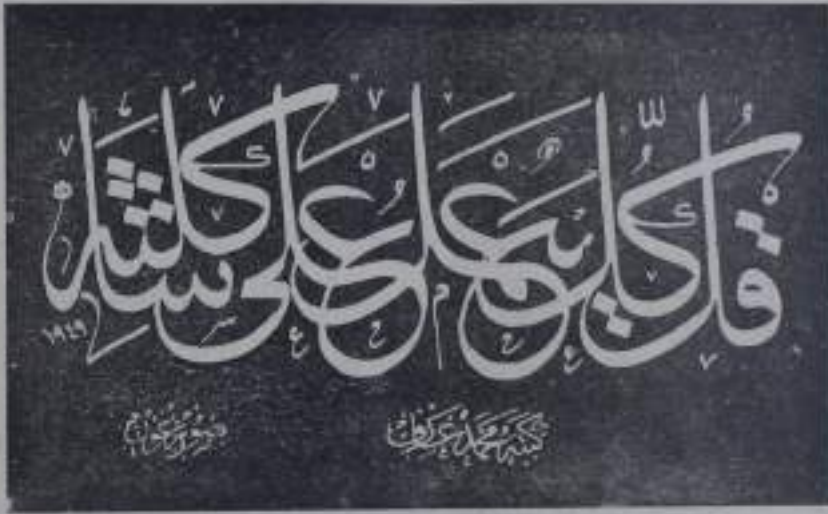 قُلْ كُلٌّ يَعْمَلُ عَلَى شَاكِلَتِهِ
١٩٤٩
كتبه محمد